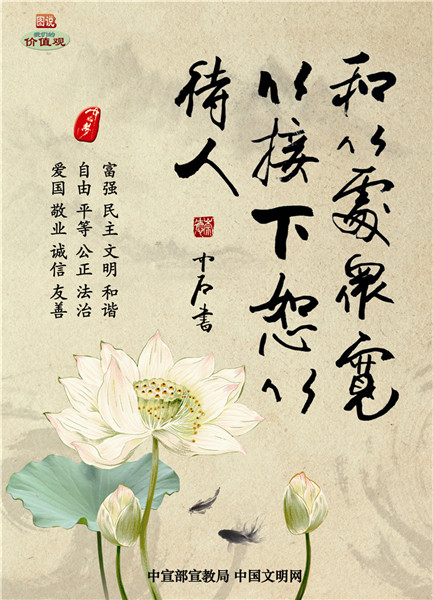 图说
我们的
价值观
和以處眾寬
以接下恕以
待人
中石書
富强 民主 文明 和谐
自由 平等 公正 法治
爱国 敬业 诚信 友善
中宣部宣教局 中国文明网